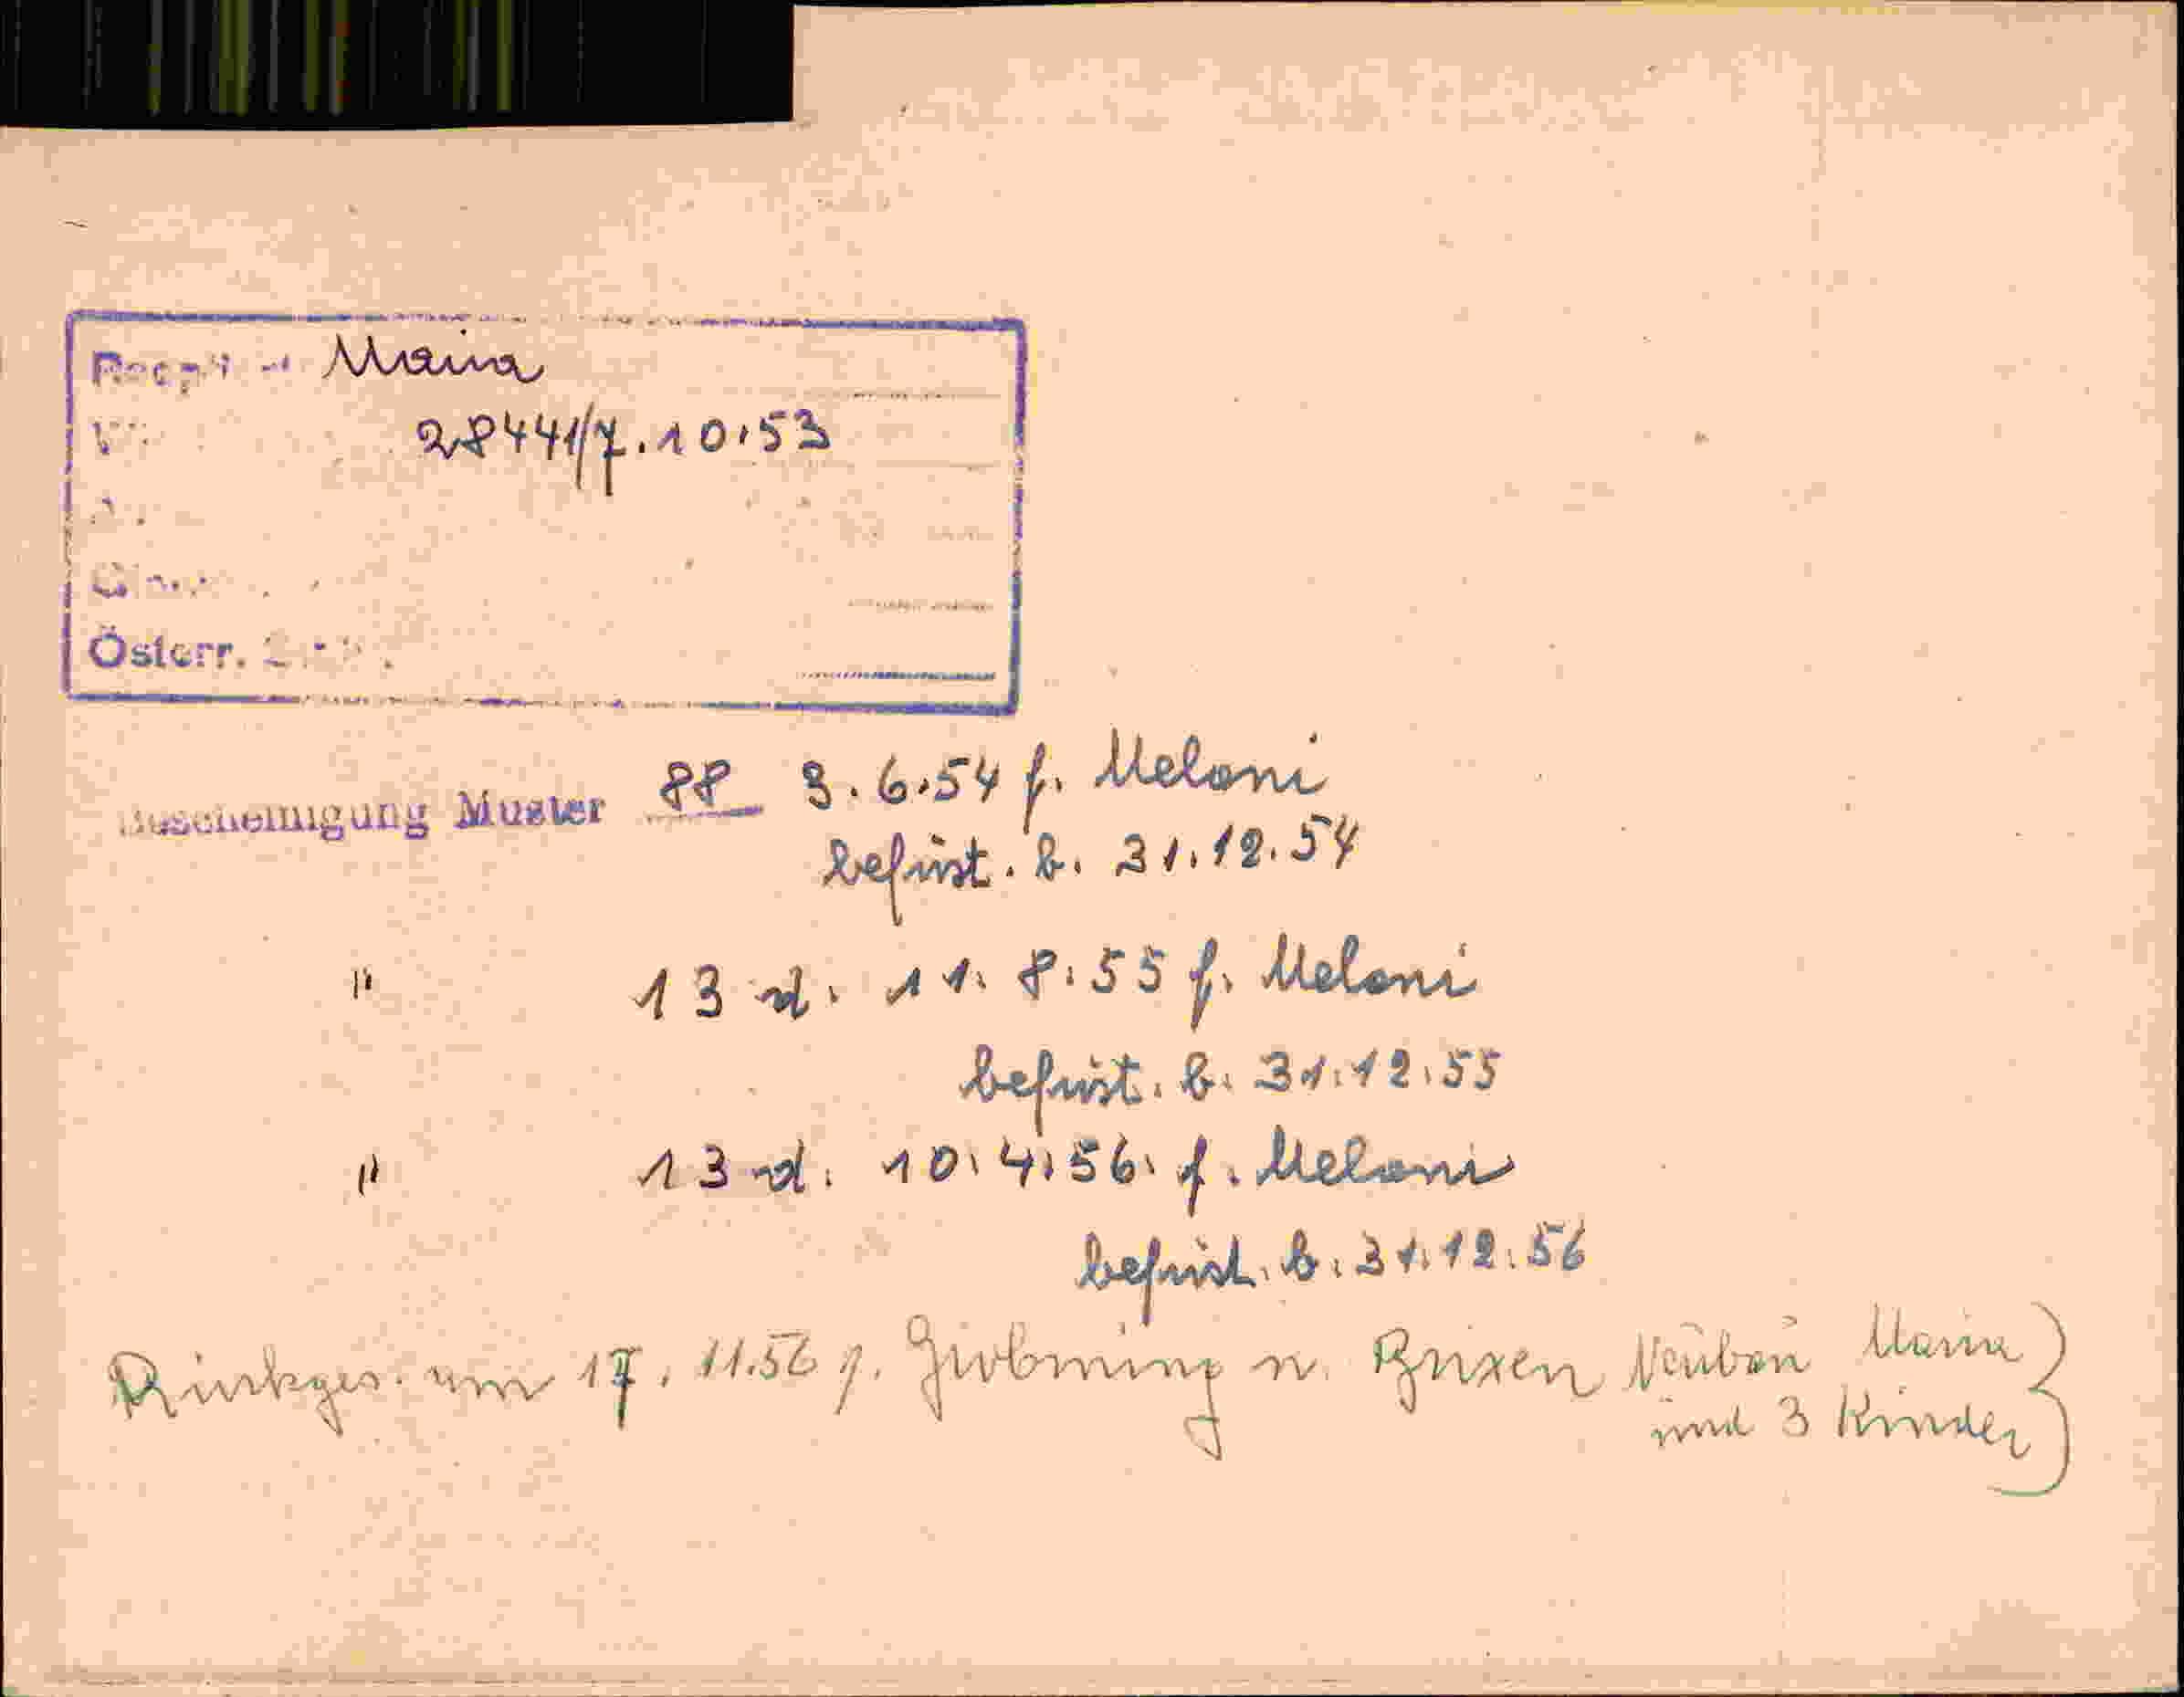 Maria
28441/7.10.53
Österr.
Bescheinigung Muster 88 3.6.54 f. Meloni
befrist. b. 31.12.54
" 13 d. 11. 8. 55 f. Meloni
befrist. b. 31.12.55
" 13 d. 10.4.56. f. Meloni
befrist. b. 31.12.56
17. 11.56 n. Brixen Maria
und 3 Kinder